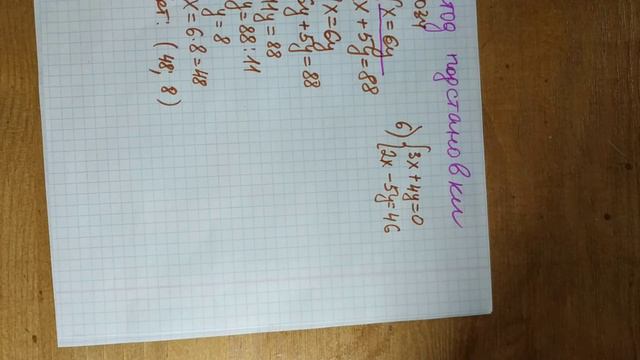 подстановки
x = 6y
x + 5y = 88
x = 6y
6y + 5y = 88
11y = 88
y = 88 : 11
y = 8
x = 6 · 8 = 48
(48; 8)
б) { 3x + 4y = 0
2x - 5y = 46